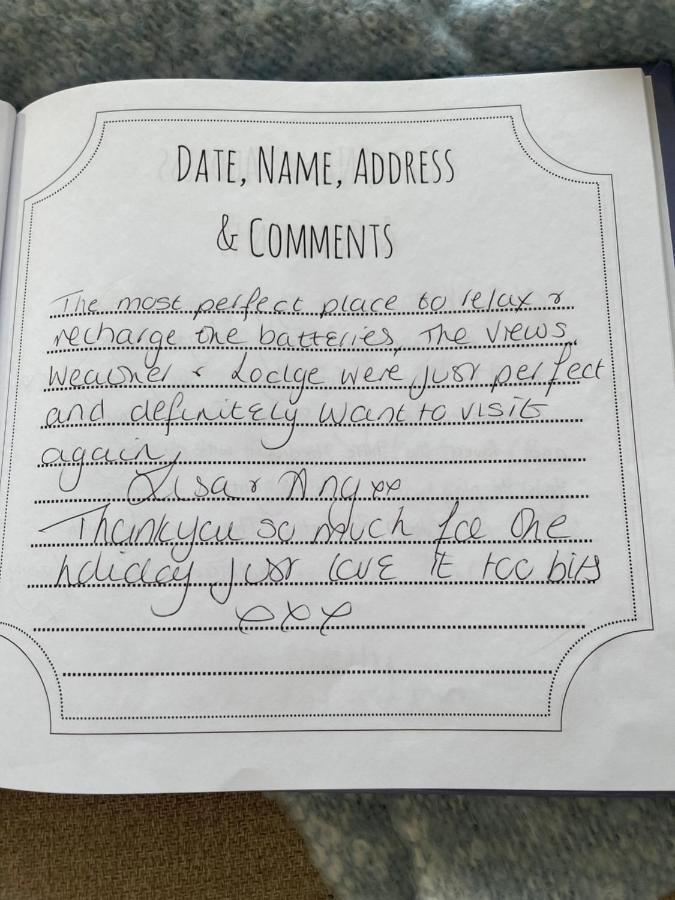 DATE, NAME, ADDRESS
& COMMENTS
The most perfect place to relax &
recharge the batteries, The views,
Weather & Lodge were just perfect
and definitely want to visit
again,
Lisa & Ang xx
Thankyou so much for the
holiday just love it too bits
xxx